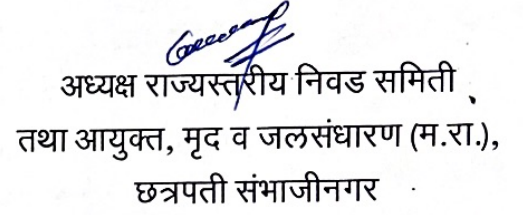 अध्यक्ष राज्यस्तरीय निवड समिती
तथा आयुक्त, मृद व जलसंधारण (म.रा.),
छत्रपती संभाजीनगर